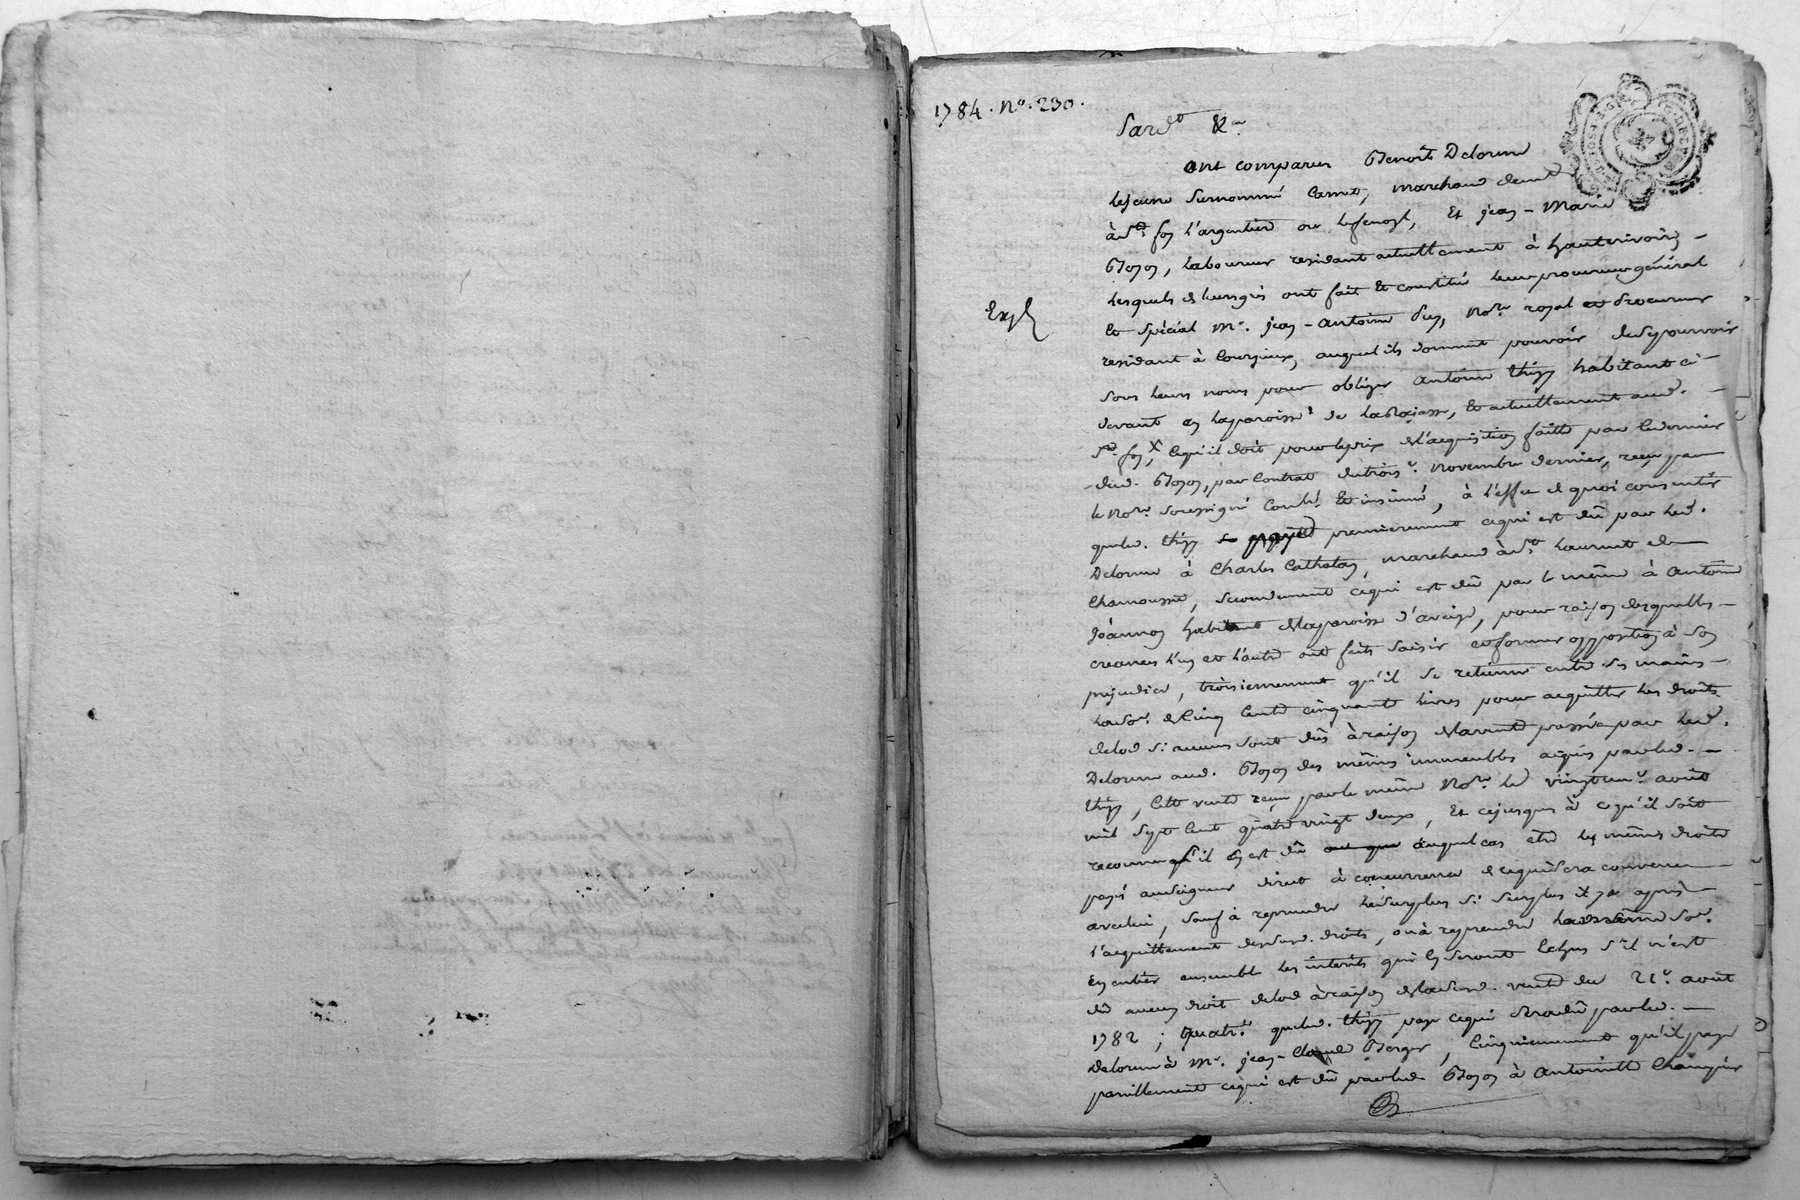 1784. No. 230.
Pard.t &.a
ont comparu Benoit Delorme
lejeune surnommé Carret, marchand demt
à St. foy l'argentiere et jean-Marie
Boyon, laboureur residant actuellement à hauterivoire
lesquels de leurs grés ont fait et constitué leur procureur général
et spécial Me. jean-antoine notre. royal et procureur
residant à Courzieux, auquel ils donnent pouvoir de se pourvoir
sous leurs noms pour obliger antoine thizy habitant ci-
devant en la paroisse de la Rajasse, et actuellement aud.
St. foy, ce qu'il doit pour le prix de l'acquisition faitte par le dernier
dud. Boyon, par Contrat du trois e. novembre dernier, reçu par
le notre. soussigné Contlé. et insinué, à l'effet de quoi consentir
que led. thizy premierement ce qui est dû par led.
Delorme à Charles Catholan, marchand à St. Laurent de
Chamousset, secondement ce qui est dû par le même à antoine
joannon habitant de la paroisse d'aveize, pour raison desquelles
creances l'un et l'autre ont faits saisir et former opposition à son
préjudice, troisiemement qu'il se retienne entre ses mains
la so.e de Cinq Cents cinquante livres pour acquitter les droits
de lod si aucuns sont dûs à raison de la vente passée par led.
Delorme aud. Boyon des mêmes immeubles acquis par led.
thizy, cette vente reçue par le même notre. le vingt un e. août
mil sept cent quatre vingt deux, et ce jusques à ce qu'il soit
reconnu qu'il en est dû auquel cas etre les mêmes droits
payés au seigneur direct à concurrence de ce qui sera convenu
avec lui, sauf à reprendre le surplus si surplus il y a après
l'acquittement desd. droits, ou à reprendre la même so.e
en entier ensemble les interets qui en seront echus s'il n'est
dû aucun droit de lod à raison de lad. vente du 21e. août
1782 ; quatr.t que led. thizy paye ce qui est dû par led.
Delorme à Me. jean-Claude Berger, Cinquiemement qu'il paye
pareillement ce qui est dû par led. Boyon à antoinette